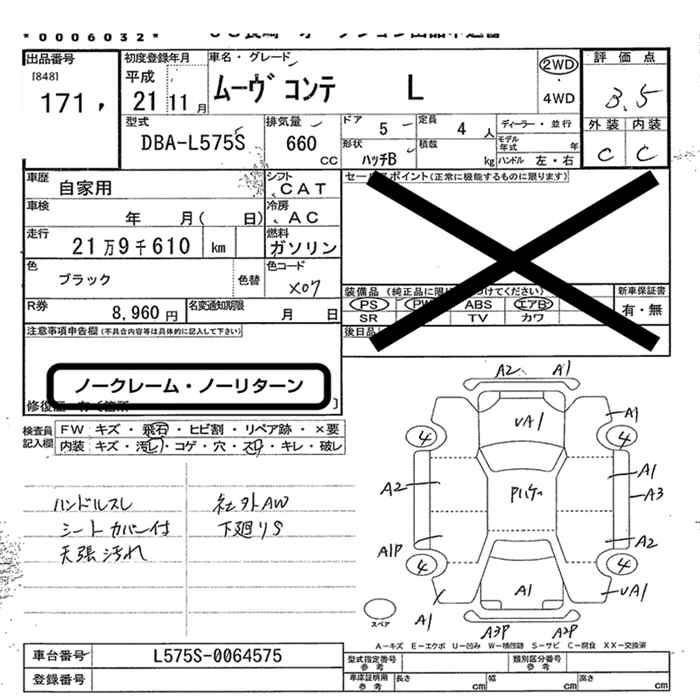 *0006032*
出品番号
[848]
171
初度登録年月
平成
21 11 月
車名・グレード
ムーヴ コンテ L
2WD
・
4WD
評価点
3.5
型式
DBA-L575S
排気量
660
CC
ドア
5
定員
4 人
ディーラー・並行
モデル年式 年
外装 内装
C C
形状
ハッチB
積載
kg
ハンドル 左・右
車歴
自家用
シフト
CAT
セールスポイント(正常に機能するものに限ります)
車検
年 月( 日)
冷房
AC
走行
21万9千610 km
燃料
ガソリン
色
ブラック
色替
色コード
X07
装備品 (純正品に限り つけてください)
新車保証書
PS PW ABS エアB
有・無
SR TV カワ
R券
8,960 円
名変通知期限
月 日
後日品
注意事項申告欄(不具合内容等は具体的に記入して下さい)
ノークレーム・ノーリターン
検査員記入欄
FW キズ・飛石・ヒビ割・リペア跡・×要
内装 キズ・汚レ・コゲ・穴・スレ・キレ・破レ
ハンドルスレ 社外AW
シートカバー付 下廻りS
天張汚れ
A2 A1
UA1
A1
4 4
A2
A1
A3
A1P
A2
4 4
A1
UA1
A1
A3P A2P
スペア
A=キズ E=エクボ U=凹み W=補修跡 S=サビ C=腐食 XX=交換済
車台番号
L575S-0064575
登録番号
型式指定番号 参考
類別区分番号 参考
車庫証明用 参考
長さ cm
幅 cm
高さ cm